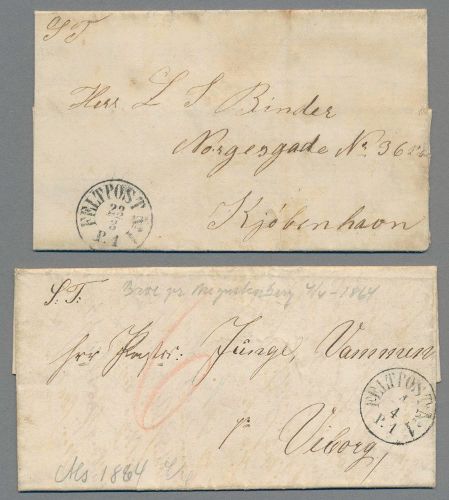 S T
Herr L S Binder
Norgesgade No 36
Kjöbenhavn
FELTPOST A: 1
22
3
P. 1
S: T:
Brev 4/4-1864
6
Herr Pastor: Junge, Vammen
pr
Viborg,
FELTPOST A: 1
4
4
P. 1
Als 1864 4/4